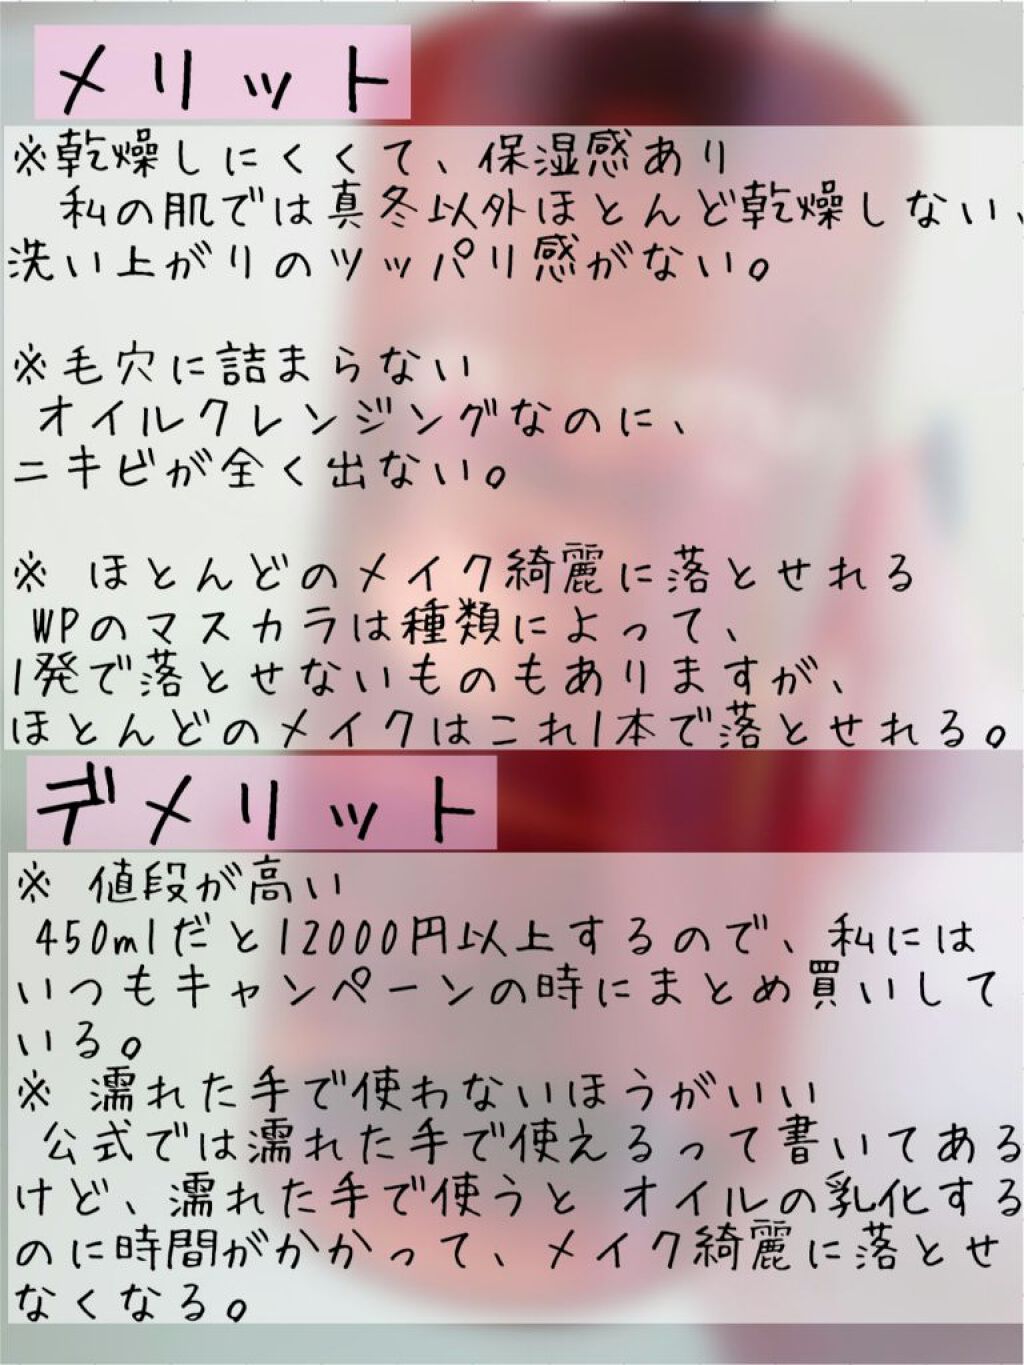 メリット
※乾燥しにくくて、保湿感あり
私の肌では真冬以外ほとんど乾燥しない、
洗い上がりのツッパリ感がない。
※毛穴に詰まらない
オイルクレンジングなのに、
ニキビが全く出ない。
※ ほとんどのメイク綺麗に落とせれる
WPのマスカラは種類によって、
1発で落とせないものもありますが、
ほとんどのメイクはこれ1本で落とせれる。
デメリット
※ 値段が高い
450mlだと12000円以上するので、私には
いつもキャンペーンの時にまとめ買いして
いる。
※ 濡れた手で使わないほうがいい
公式では濡れた手で使えるって書いてある
けど、濡れた手で使うと オイルの乳化する
のに時間がかかって、メイク綺麗に落とせ
なくなる。